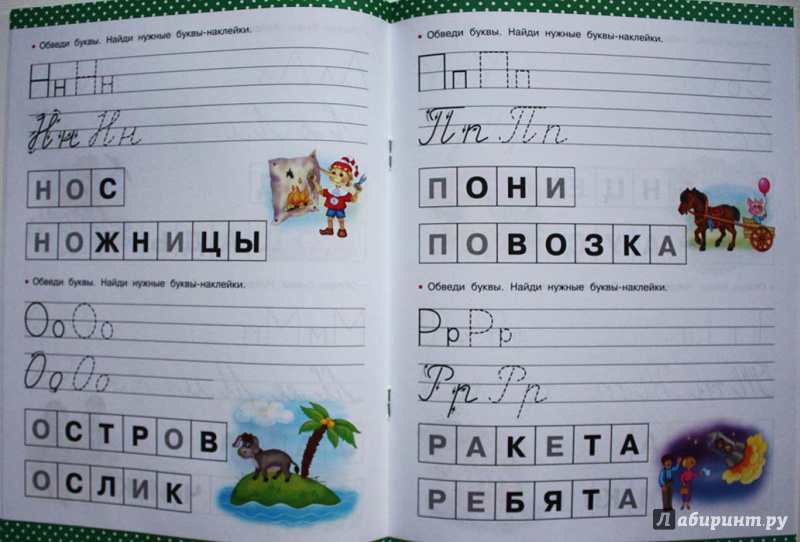 Обведи буквы. Найди нужные буквы-наклейки.
Нн Нн
Нн Нн
НОС
НОЖНИЦЫ
Обведи буквы. Найди нужные буквы-наклейки.
Оо Оо
Оо Оо
ОСТРОВ
ОСЛИК
Обведи буквы. Найди нужные буквы-наклейки.
Пп Пп
Пп Пп
ПОНИ
ПОВОЗКА
Обведи буквы. Найди нужные буквы-наклейки.
Рр Рр
Рр Рр
РАКЕТА
РЕБЯТА
Лабиринт.ру